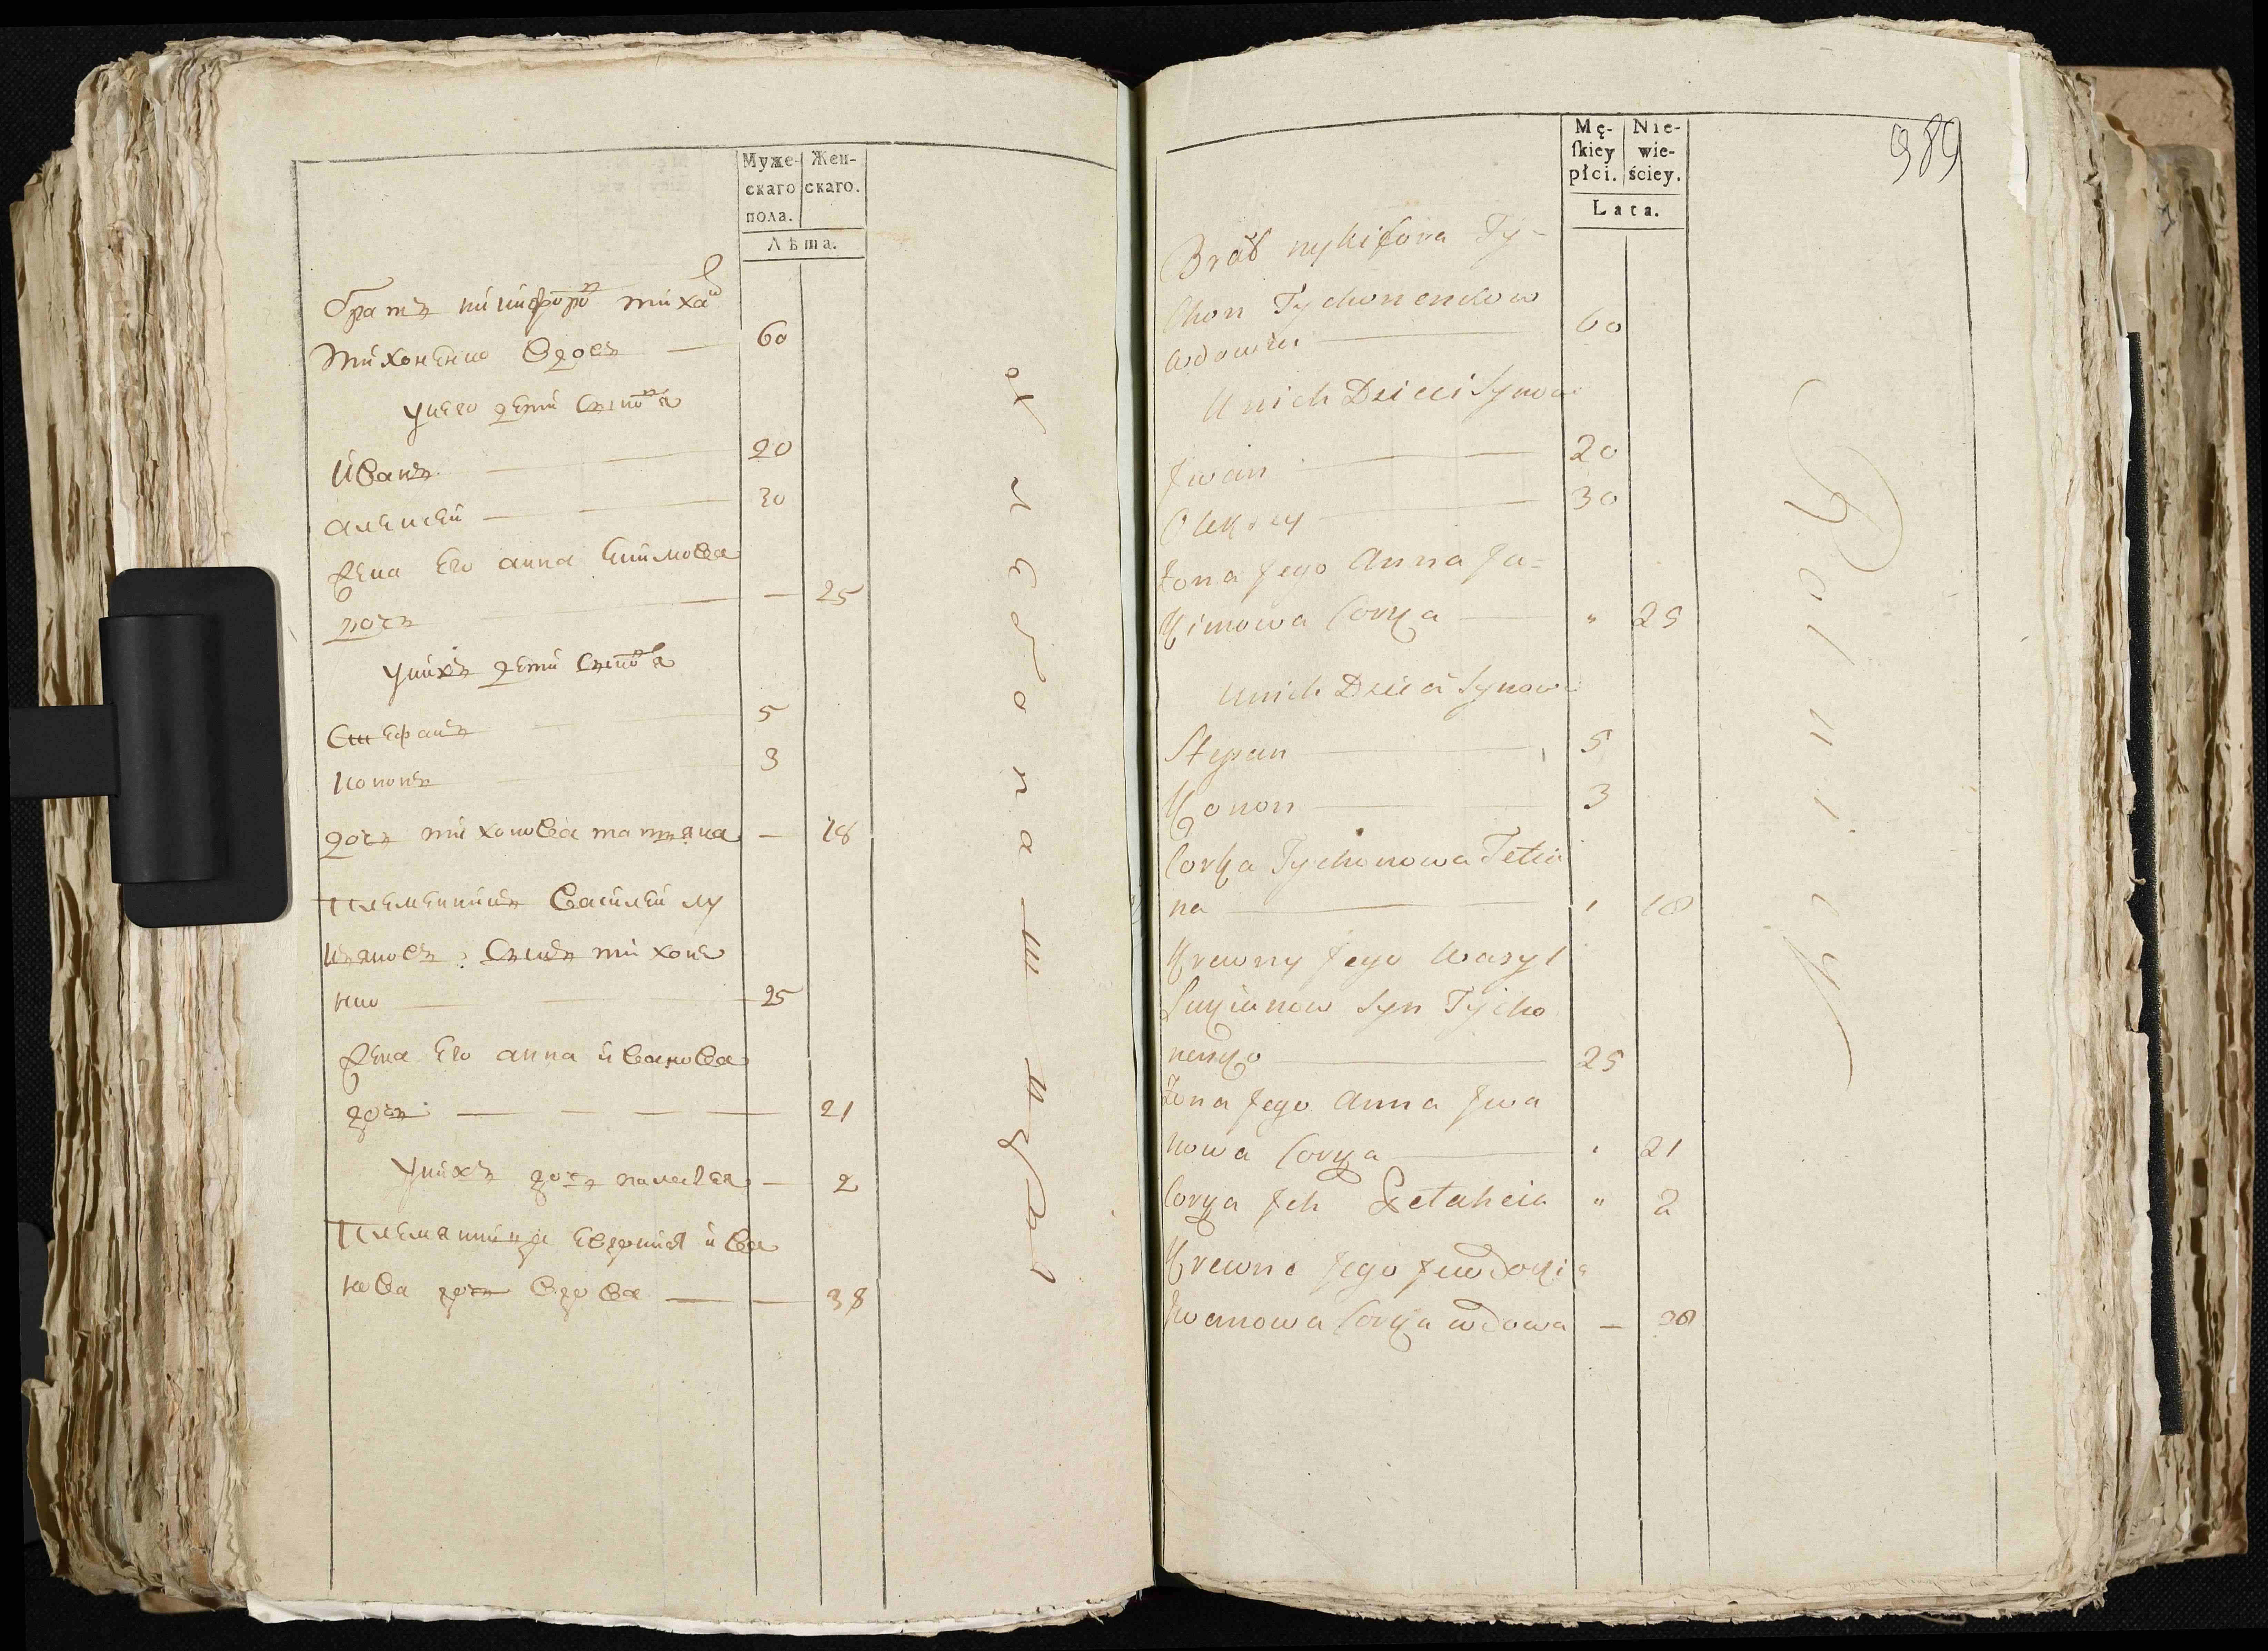 Муже-
скаго
пола.
Жен-
скаго.
Лѣта.
братъ никифоров тихон
тихоненко вдовъ — 60
унего дети сыновя
иванъ — 20
алексей — 30
жена его анна екимова
дочъ — 25
унихъ дети сыновя
стефанъ 5
кононъ 3
дочъ тихонова татяна — 18
племенникъ василей лу
кяновъ сынъ тихоне
нко — 25
жена его анна иванова
дочъ — 21
унихъ дочъ палагея — 2
племянница евдокия ива
нова дочъ вдова — 38
хлебопашцы
989
Mę-
skiey
płci.
Nie-
wie-
ściey.
Lata.
Brat nykifora Ty-
Chon Tychonenkow
wdowiec — 60
Unich Dzieci Synow
Jwan — 20
Oleksey — 30
Żona Jego Anna Ja=
Kimowa Corka — " 25
Unich Dzieci Synow
Stepan — 5
Konon — 3
Corka Tychonowa Tetia
na — 18
Krewny Jego Wasyl
Lukianow Syn Tycho
nenko — 25
Żona Jego Anna Jwa
nowa Corka — 21
Corka Jch Pelaheia " 2
Krewna Jego Jewdokia
Jwanowa Corka wdowa — 38
Rolnicy